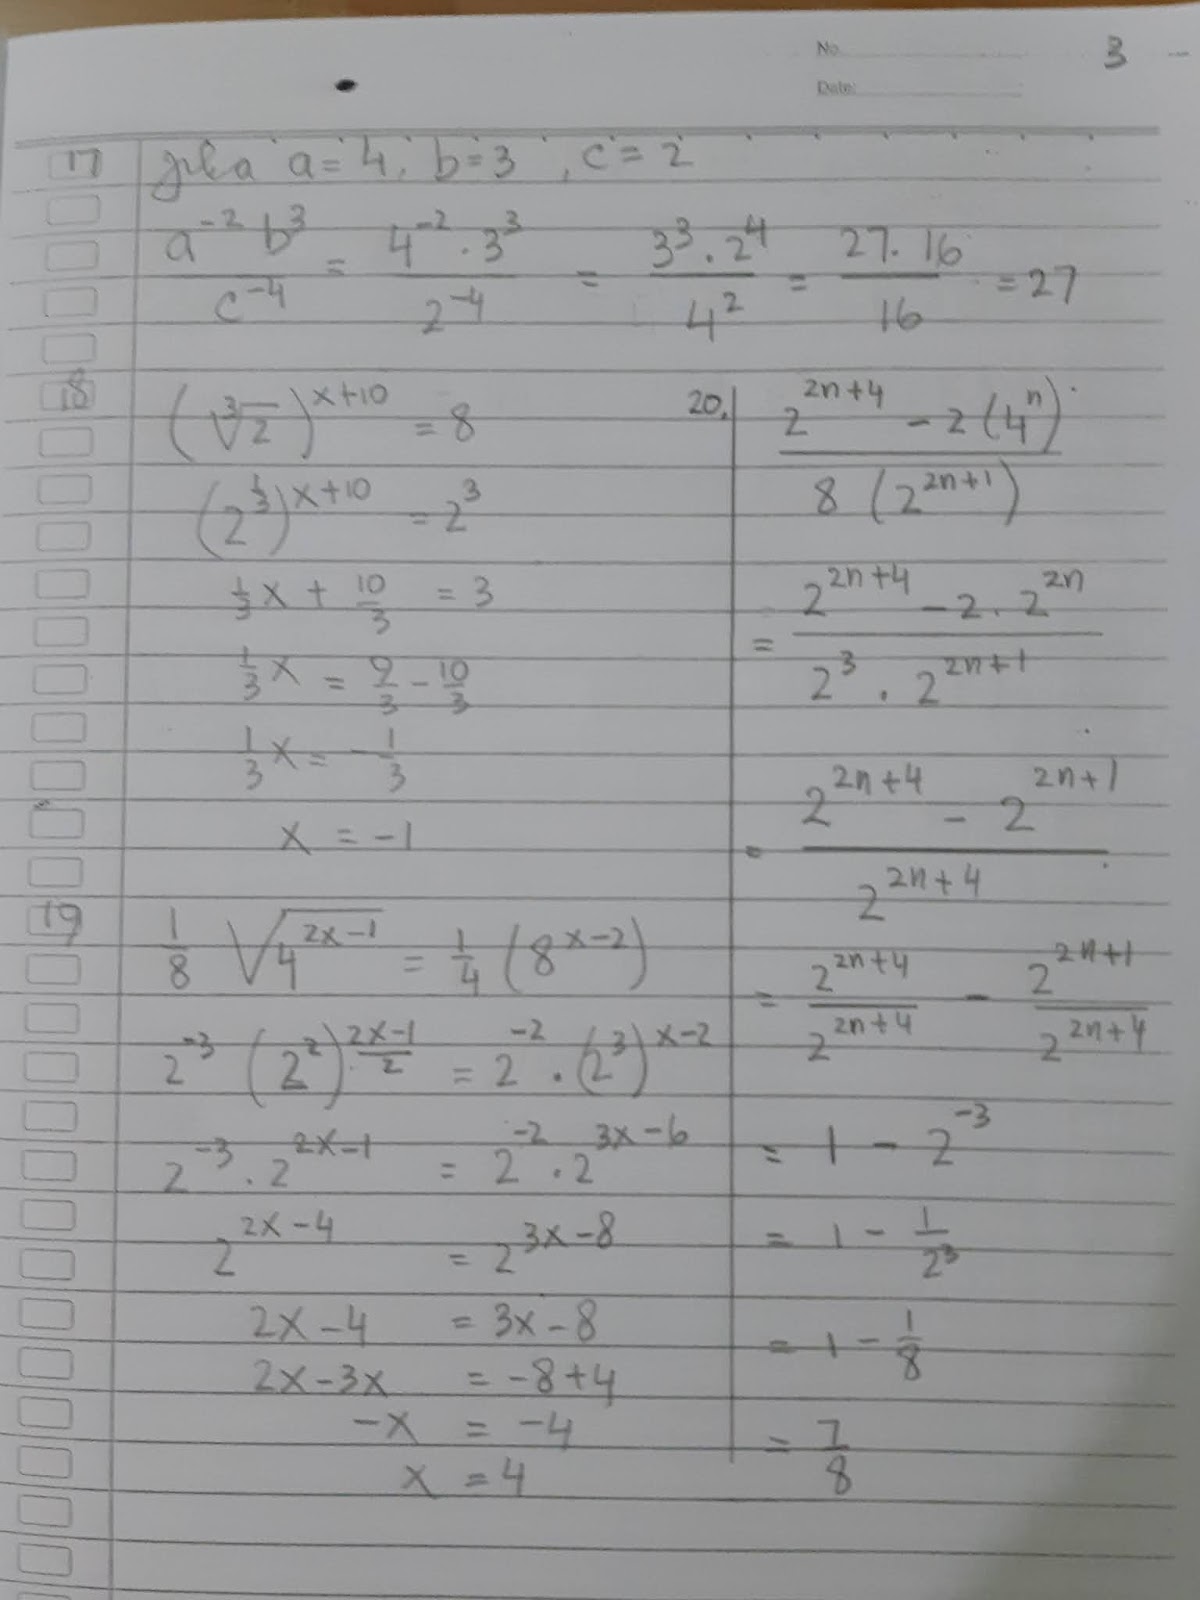 No. 3
Date:
17 jika a = 4, b = 3, c = 2
a⁻² b³ / c⁻⁴ = 4⁻² · 3³ / 2⁻⁴ = 3³ · 2⁴ / 4² = 27 · 16 / 16 = 27
18 (∛2)^(x+10) = 8
(2^(1/3))^(x+10) = 2³
1/3 x + 10/3 = 3
1/3 x = 9/3 - 10/3
1/3 x = - 1/3
x = -1
19 1/8 √(4^(2x-1)) = 1/4 (8^(x-2))
2⁻³ (2²)^((2x-1)/2) = 2⁻² · (2³)^(x-2)
2⁻³ · 2^(2x-1) = 2⁻² · 2^(3x-6)
2^(2x-4) = 2^(3x-8)
2x - 4 = 3x - 8
2x - 3x = -8 + 4
-x = -4
x = 4
20. (2^(2n+4) - 2 (4^n)) / (8 (2^(2n+1)))
= (2^(2n+4) - 2 . 2^(2n)) / (2³ . 2^(2n+1))
= (2^(2n+4) - 2^(2n+1)) / 2^(2n+4)
= 2^(2n+4) / 2^(2n+4) - 2^(2n+1) / 2^(2n+4)
= 1 - 2⁻³
= 1 - 1/2³
= 1 - 1/8
= 7/8